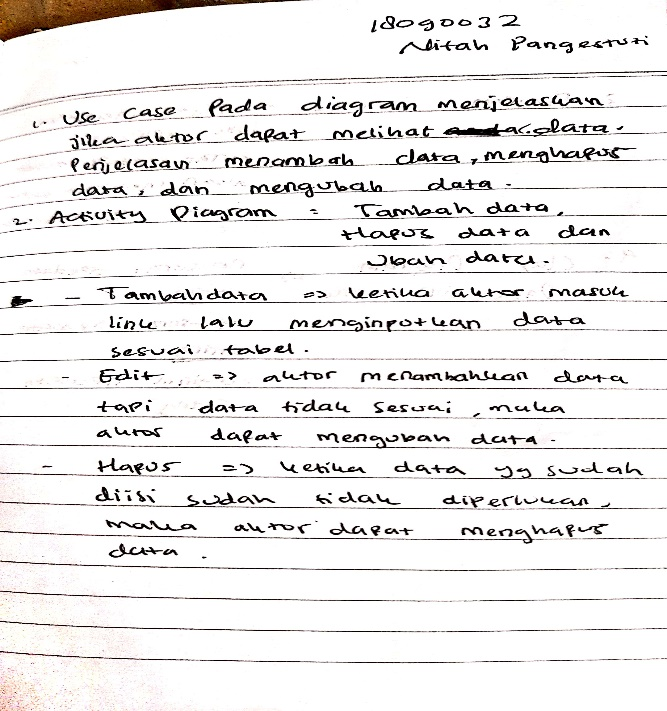 18090032
Nitah Pangestuti
1. Use Case Pada diagram menjelaskan
jika aktor dapat melihat data.
Penjelasan menambah data, menghapus
data, dan mengubah data.
2. Activity Diagram = Tambah data,
Hapus data dan
Ubah data.
- Tambah data => ketika aktor masuk
link lalu menginputkan data
sesuai tabel.
- Edit => aktor menambahkan data
tapi data tidak sesuai, maka
aktor dapat mengubah data.
- Hapus => ketika data yg sudah
diisi sudah tidak diperlukan,
maka aktor dapat menghapus
data.